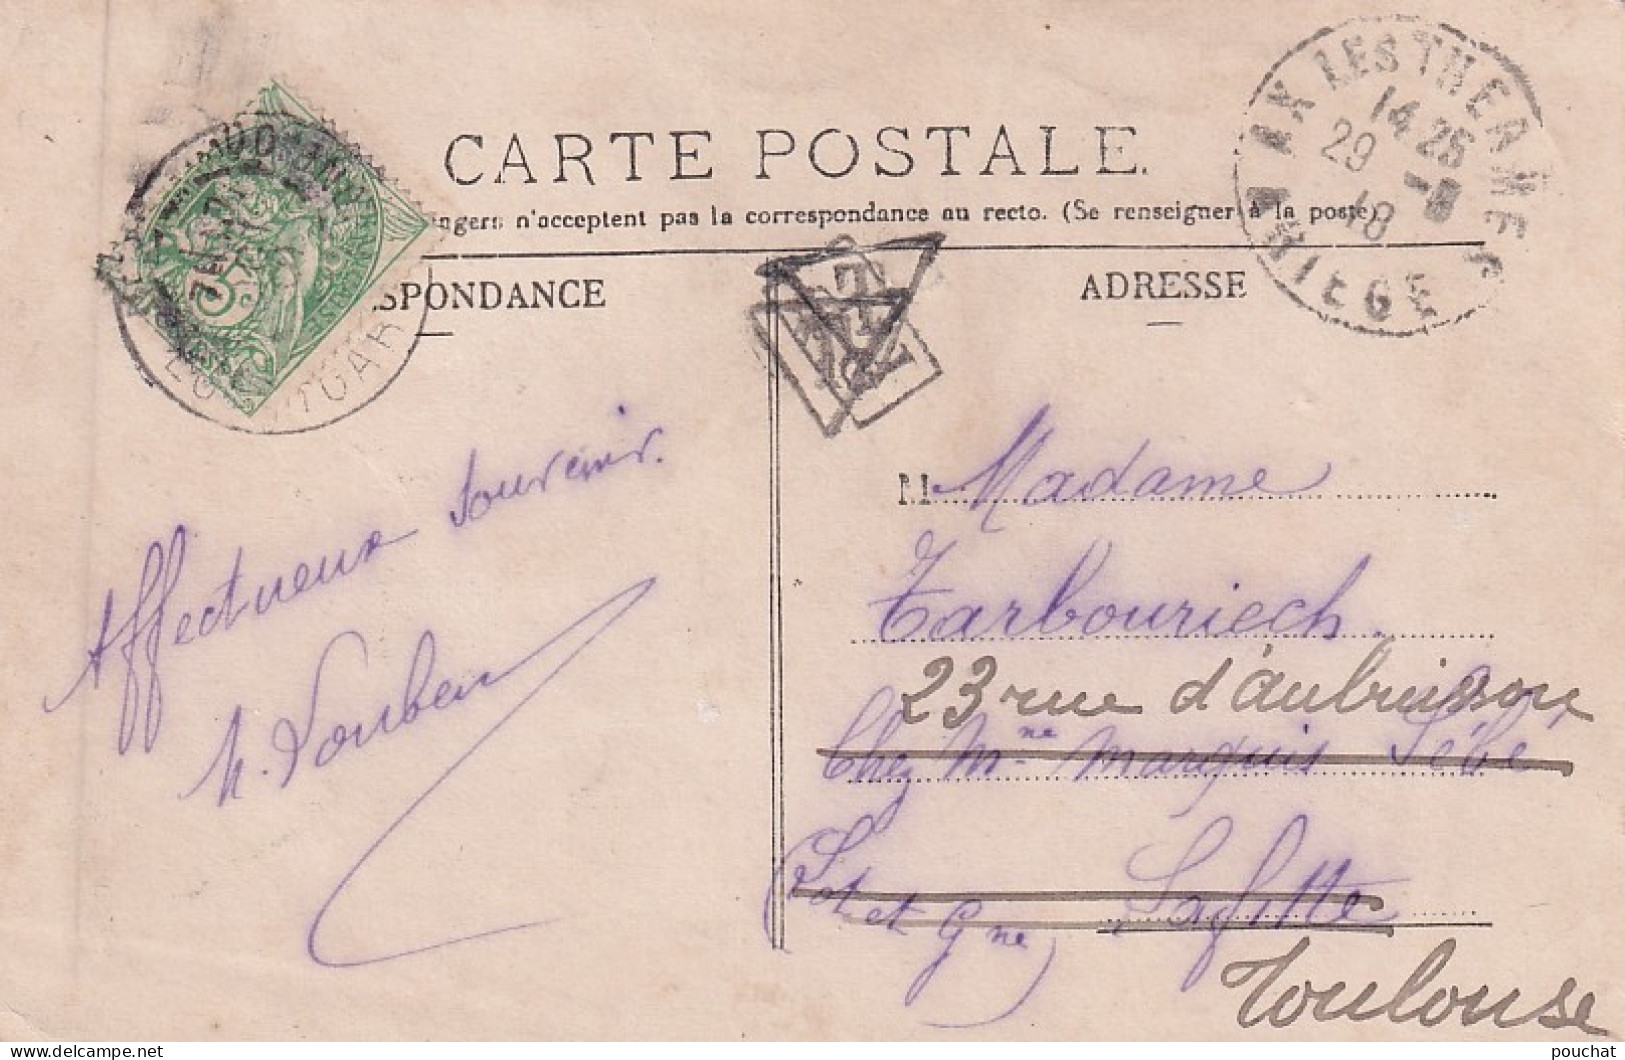 CARTE POSTALE
ngers n'acceptent pas la correspondance au recto. (Se renseigner à la poste)
SPONDANCE
ADRESSE
AX LES THERMES
14 25
29 -8
18
ARIEGE
5
T
Affectueux souvenir.
M Madame
Tarbouriech.
23 rue d'aubuisson
Chez Mme marquis Sébé
Lafitte
(Lot et Gne)
Toulouse
delcampe.net
pouchat